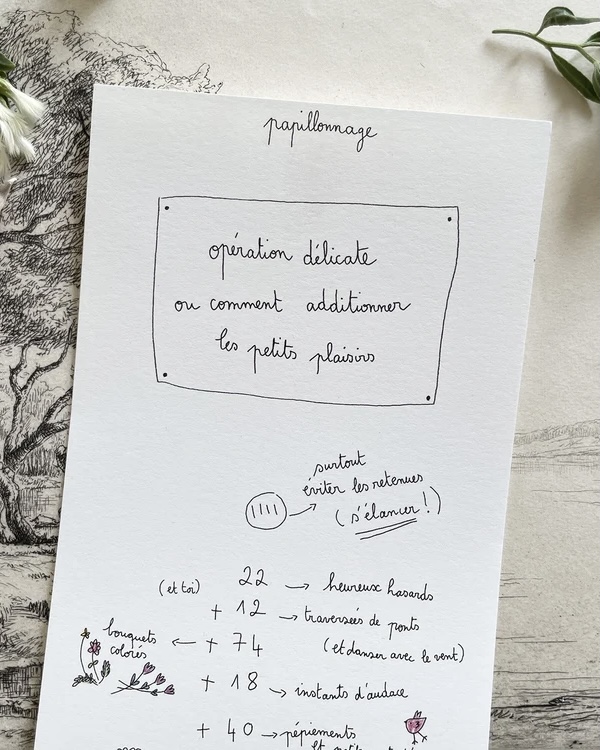 papillonnage
opération délicate
ou comment additionner
les petits plaisirs
surtout
éviter les retenues
(s'élancer !)
(et toi) 22 → heureux hasards
+ 12 → traversées de ponts
(et danser avec le vent)
bouquets
colorés ← + 74
+ 18 → instants d'audace
+ 40 → pépiements